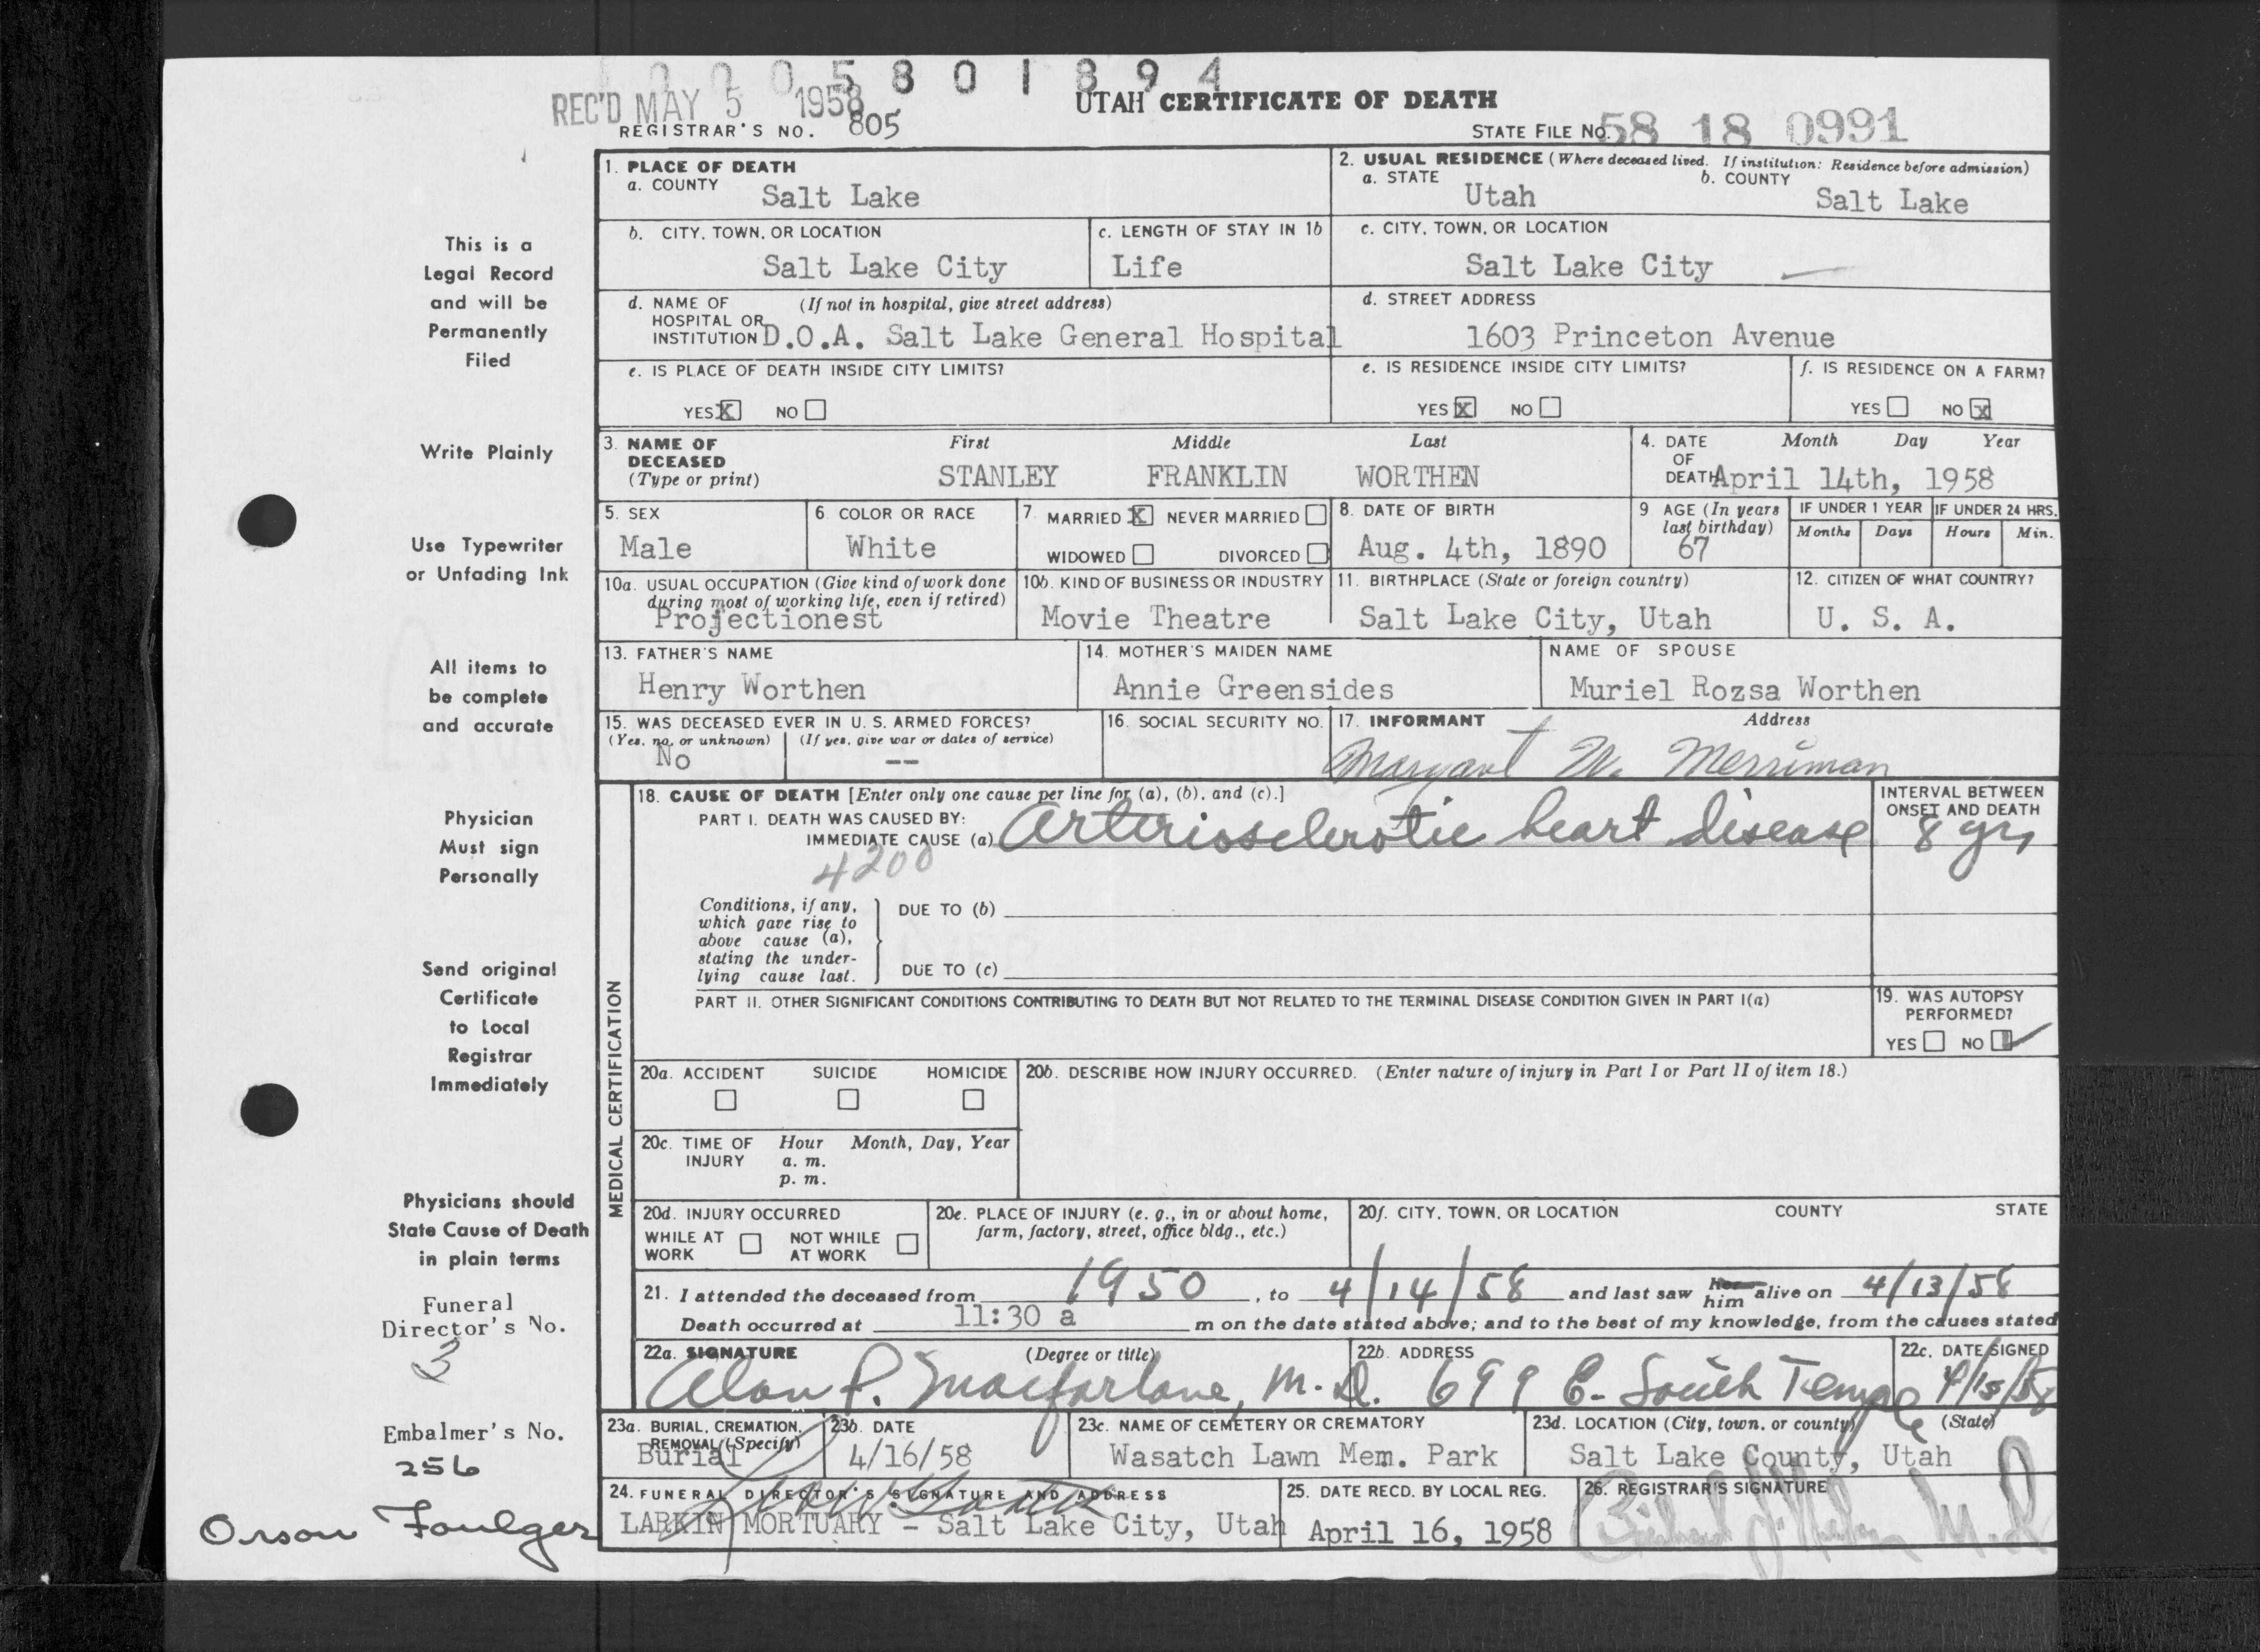 0 0 0 5 8 0 1 8 9 4
REC'D MAY 5 1958
UTAH CERTIFICATE OF DEATH
REGISTRAR'S NO. 805
STATE FILE NO. 58 18 0991
This is a
Legal Record
and will be
Permanently
Filed
Write Plainly
Use Typewriter
or Unfading Ink
All items to
be complete
and accurate
Physician
Must sign
Personally
Send original
Certificate
to Local
Registrar
Immediately
Physicians should
State Cause of Death
in plain terms
Funeral
Director's No.
3
Embalmer's No.
256
Orson Foulger
1. PLACE OF DEATH
a. COUNTY Salt Lake
2. USUAL RESIDENCE (Where deceased lived. If institution: Residence before admission)
a. STATE Utah b. COUNTY Salt Lake
b. CITY, TOWN, OR LOCATION Salt Lake City
c. LENGTH OF STAY IN 1b Life
c. CITY, TOWN, OR LOCATION Salt Lake City
d. NAME OF (If not in hospital, give street address)
HOSPITAL OR
INSTITUTION D.O.A. Salt Lake General Hospital
d. STREET ADDRESS
1603 Princeton Avenue
e. IS PLACE OF DEATH INSIDE CITY LIMITS?
YES X NO
e. IS RESIDENCE INSIDE CITY LIMITS?
YES X NO
f. IS RESIDENCE ON A FARM?
YES NO X
3. NAME OF
DECEASED
(Type or print)
First Middle Last
STANLEY FRANKLIN WORTHEN
4. DATE
OF
DEATH
Month Day Year
April 14th, 1958
5. SEX
Male
6. COLOR OR RACE
White
7. MARRIED X NEVER MARRIED
WIDOWED DIVORCED
8. DATE OF BIRTH
Aug. 4th, 1890
9. AGE (In years
last birthday)
67
IF UNDER 1 YEAR
Months Days
IF UNDER 24 HRS.
Hours Min.
10a. USUAL OCCUPATION (Give kind of work done
during most of working life, even if retired)
Projectionest
10b. KIND OF BUSINESS OR INDUSTRY
Movie Theatre
11. BIRTHPLACE (State or foreign country)
Salt Lake City, Utah
12. CITIZEN OF WHAT COUNTRY?
U. S. A.
13. FATHER'S NAME
Henry Worthen
14. MOTHER'S MAIDEN NAME
Annie Greensides
NAME OF SPOUSE
Muriel Rozsa Worthen
15. WAS DECEASED EVER IN U. S. ARMED FORCES?
(Yes, no, or unknown) (If yes, give war or dates of service)
No --
16. SOCIAL SECURITY NO.
17. INFORMANT Address
Margaret W. Merriman
MEDICAL CERTIFICATION
18. CAUSE OF DEATH [Enter only one cause per line for (a), (b), and (c).]
PART I. DEATH WAS CAUSED BY:
IMMEDIATE CAUSE (a) Arteriosclerotic heart disease
4200
INTERVAL BETWEEN
ONSET AND DEATH
8 yrs
Conditions, if any,
which gave rise to
above cause (a),
stating the under-
lying cause last.
DUE TO (b)
DUE TO (c)
PART II. OTHER SIGNIFICANT CONDITIONS CONTRIBUTING TO DEATH BUT NOT RELATED TO THE TERMINAL DISEASE CONDITION GIVEN IN PART I(a)
19. WAS AUTOPSY
PERFORMED?
YES NO ✓
20a. ACCIDENT SUICIDE HOMICIDE
20b. DESCRIBE HOW INJURY OCCURRED. (Enter nature of injury in Part I or Part II of item 18.)
20c. TIME OF INJURY
Hour Month, Day, Year
a. m.
p. m.
20d. INJURY OCCURRED
WHILE AT WORK NOT WHILE AT WORK
20e. PLACE OF INJURY (e. g., in or about home,
farm, factory, street, office bldg., etc.)
20f. CITY, TOWN, OR LOCATION COUNTY STATE
21. I attended the deceased from 1950, to 4/14/58 and last saw her him alive on 4/13/58
Death occurred at 11:30 a m on the date stated above; and to the best of my knowledge, from the causes stated
22a. SIGNATURE (Degree or title)
Alan P. Macfarlane, M.D.
22b. ADDRESS
699 E. South Temple
22c. DATE SIGNED
4/15/58
23a. BURIAL, CREMATION,
REMOVAL (Specify)
Burial
23b. DATE
4/16/58
23c. NAME OF CEMETERY OR CREMATORY
Wasatch Lawn Mem. Park
23d. LOCATION (City, town, or county) (State)
Salt Lake County, Utah
24. FUNERAL DIRECTOR'S SIGNATURE AND ADDRESS
LARKIN MORTUARY - Salt Lake City, Utah
25. DATE RECD. BY LOCAL REG.
April 16, 1958
26. REGISTRAR'S SIGNATURE
M.D.